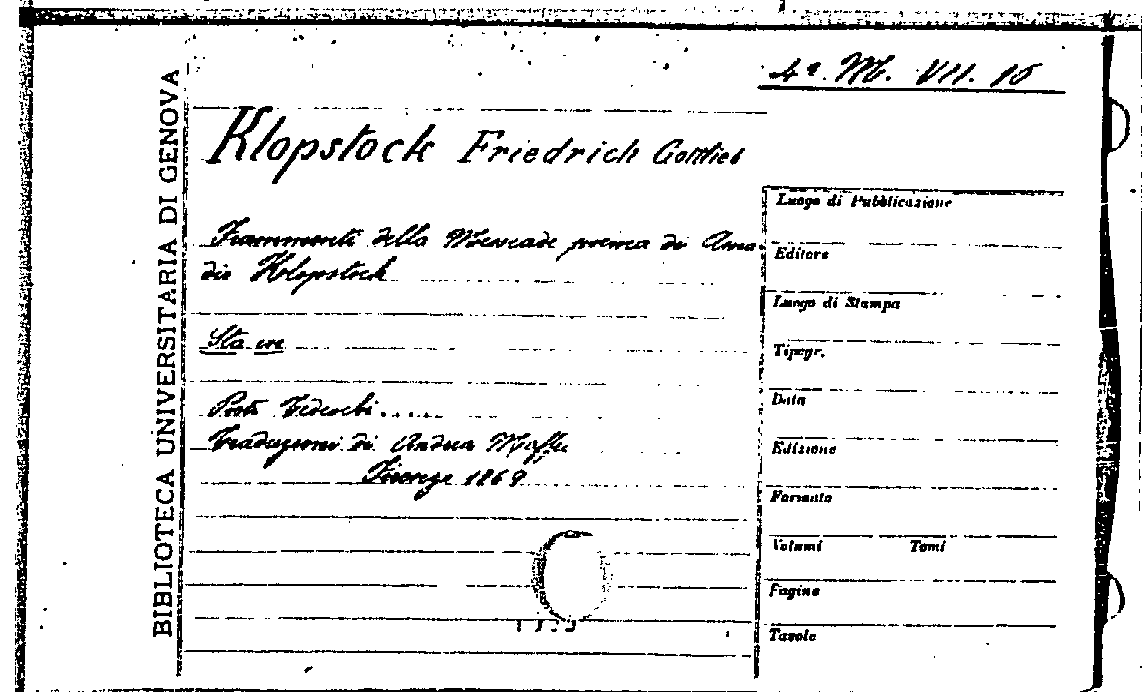 4ª. M. VII. 16
BIBLIOTECA UNIVERSITARIA DI GENOVA
Klopstock Friedrich Gottlieb
Frammenti della Messiade poema di Ama-
dio Klopstock
Sta in
Poeti Tedeschi.....
Traduzioni di Andrea Maffei
Firenze 1869
Luogo di Pubblicazione
Editore
Luogo di Stampa
Tipogr.
Data
Edizione
Formato
Volumi Tomi
Pagine
Tavole